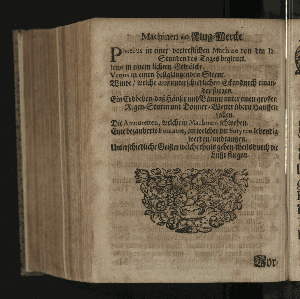 Machinen und Flug-Wercke
Phœbus in einer vortrefflichen Machine von den 12
Stunden des Tages begleitet.
in einem lichten Gewölcke.
Venus in einen hellgläntzenden Sterne.
Winde / welche aus unterschiedlichen Ecken durch einan-
der fliegen.
Ein Erdbeben / daß Häuser und Bäume unter einen grossen
Regen-Sturm und Donner-Wetter übern Hauffen
fallen.
Die Amouretten, welche in Machinen schweben.
Eine bezauberte Fontaine, an welcher die Satyren lebendig
werden / und tantzen.
Unterschiedliche Geister welche theils gehen / theils durch die
Lufft fliegen.
Vor-